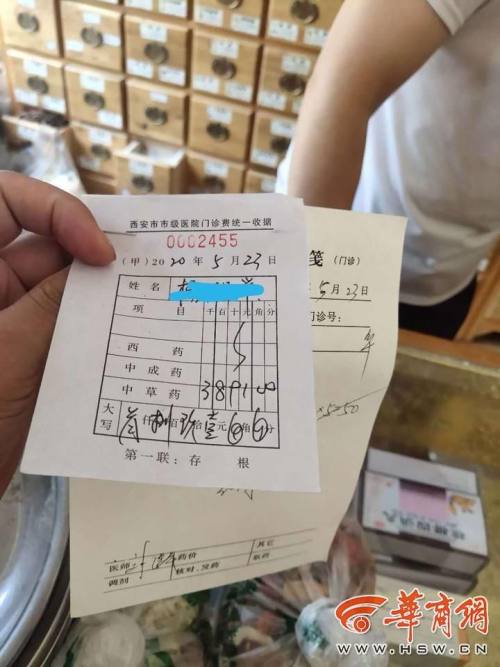 西安市市级医院门诊费统一收据
0002455
(甲) 2020年5月23日
姓名
项目 千百十元角分
西药
中成药
中草药 3891.00
大写 仟 佰 拾壹元 角 分
第一联:存根
笺 (门诊)
5月23日
门诊号:
医师 药价 其它
调剂 核对、发药
华商网
WWW.HSW.CN